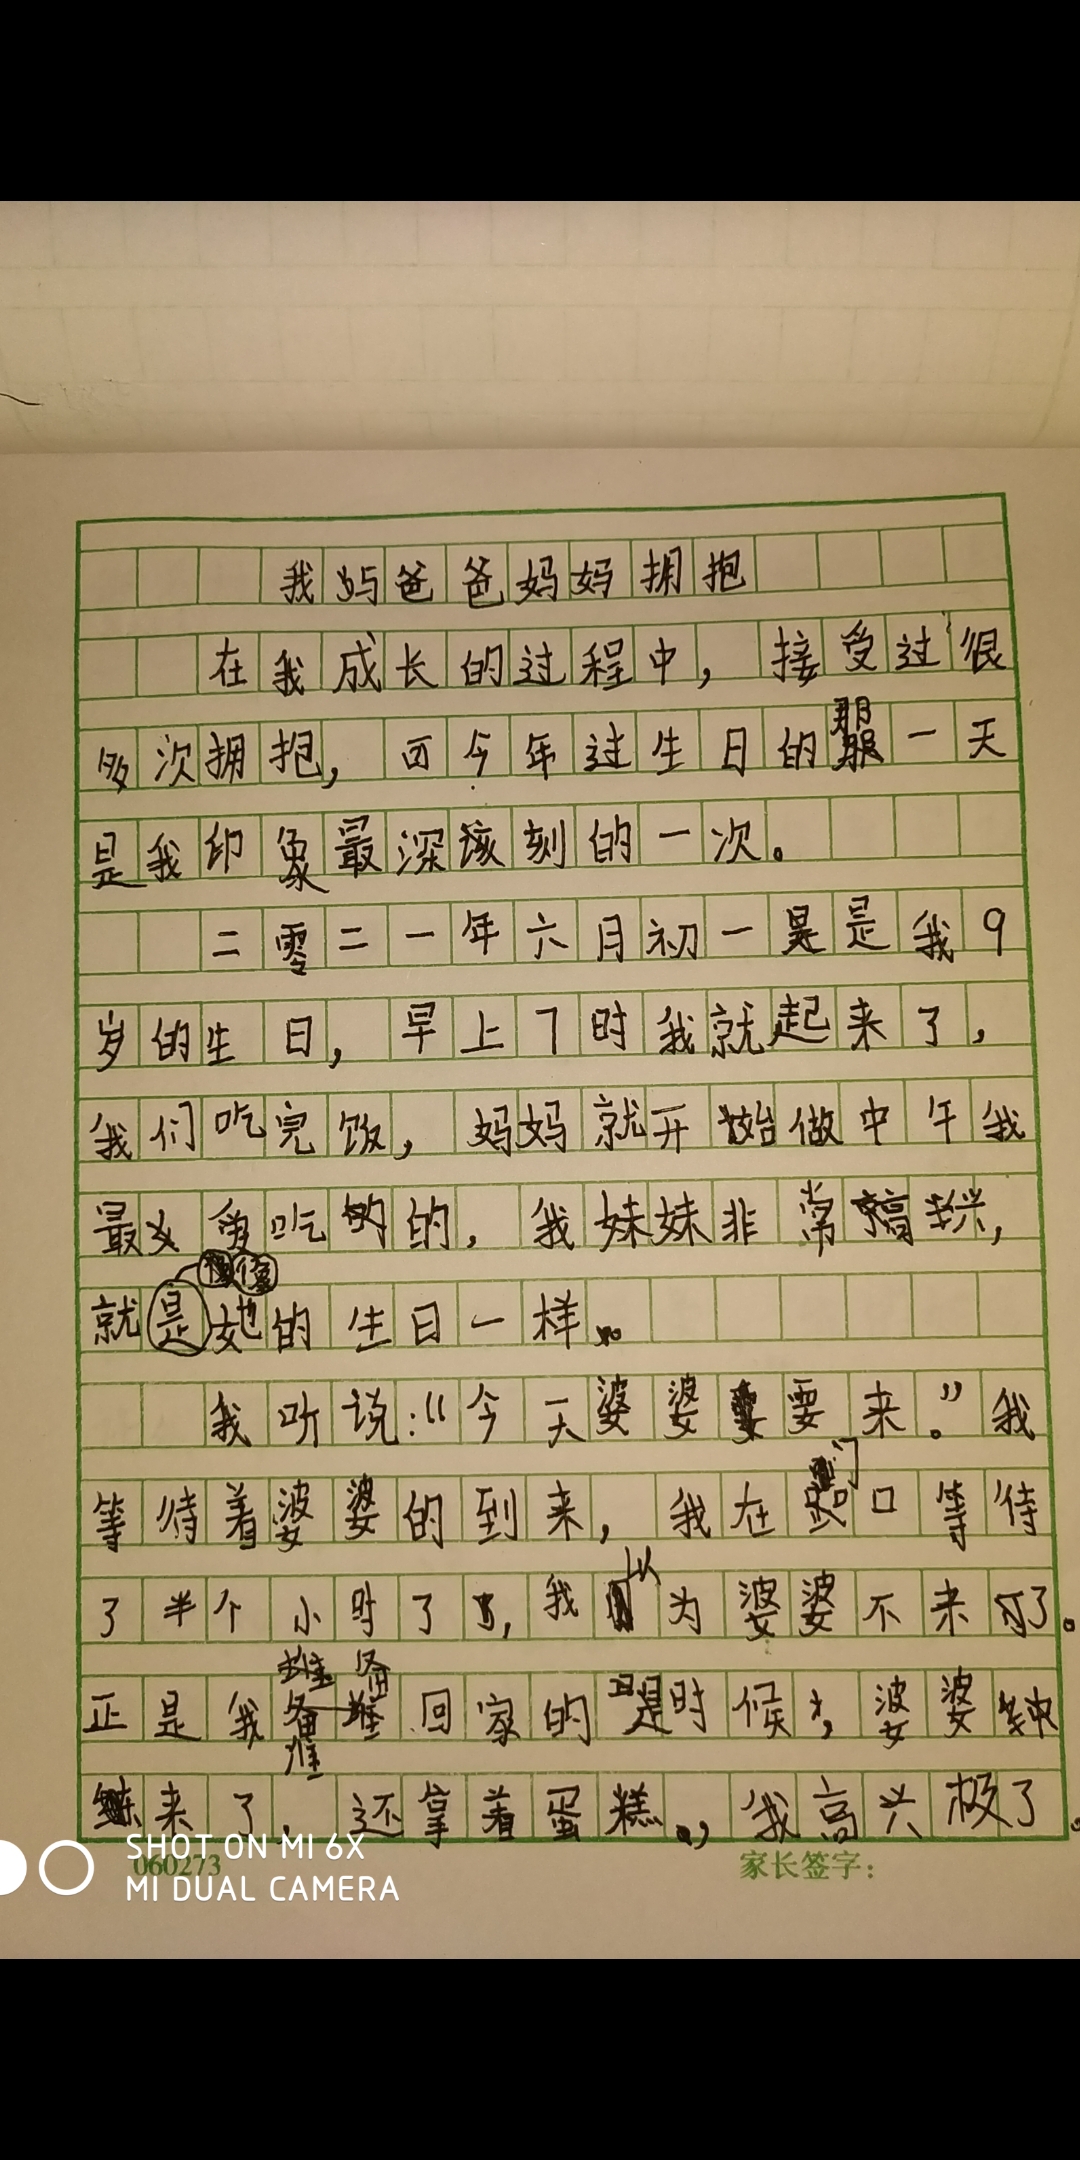 我与爸爸妈妈拥抱
在我成长的过程中，接受过很
多次拥抱，而今年过生日的那一天
是我印象最深刻的一次。
二零二一年六月初一是我9
岁的生日，早上7时我就起来了，
我们吃完饭，妈妈就开始做中午我
最爱吃的，我妹妹非常高兴，
就像是她的生日一样。
我听说：“今天婆婆要来。”我
等待着婆婆的到来，我在门口等待
了半个小时了，我以为婆婆不来了。
正是我准备回家的时候，婆婆
来了，还拿着蛋糕，我高兴极了。
060273
家长签字：
SHOT ON MI 6X
MI DUAL CAMERA